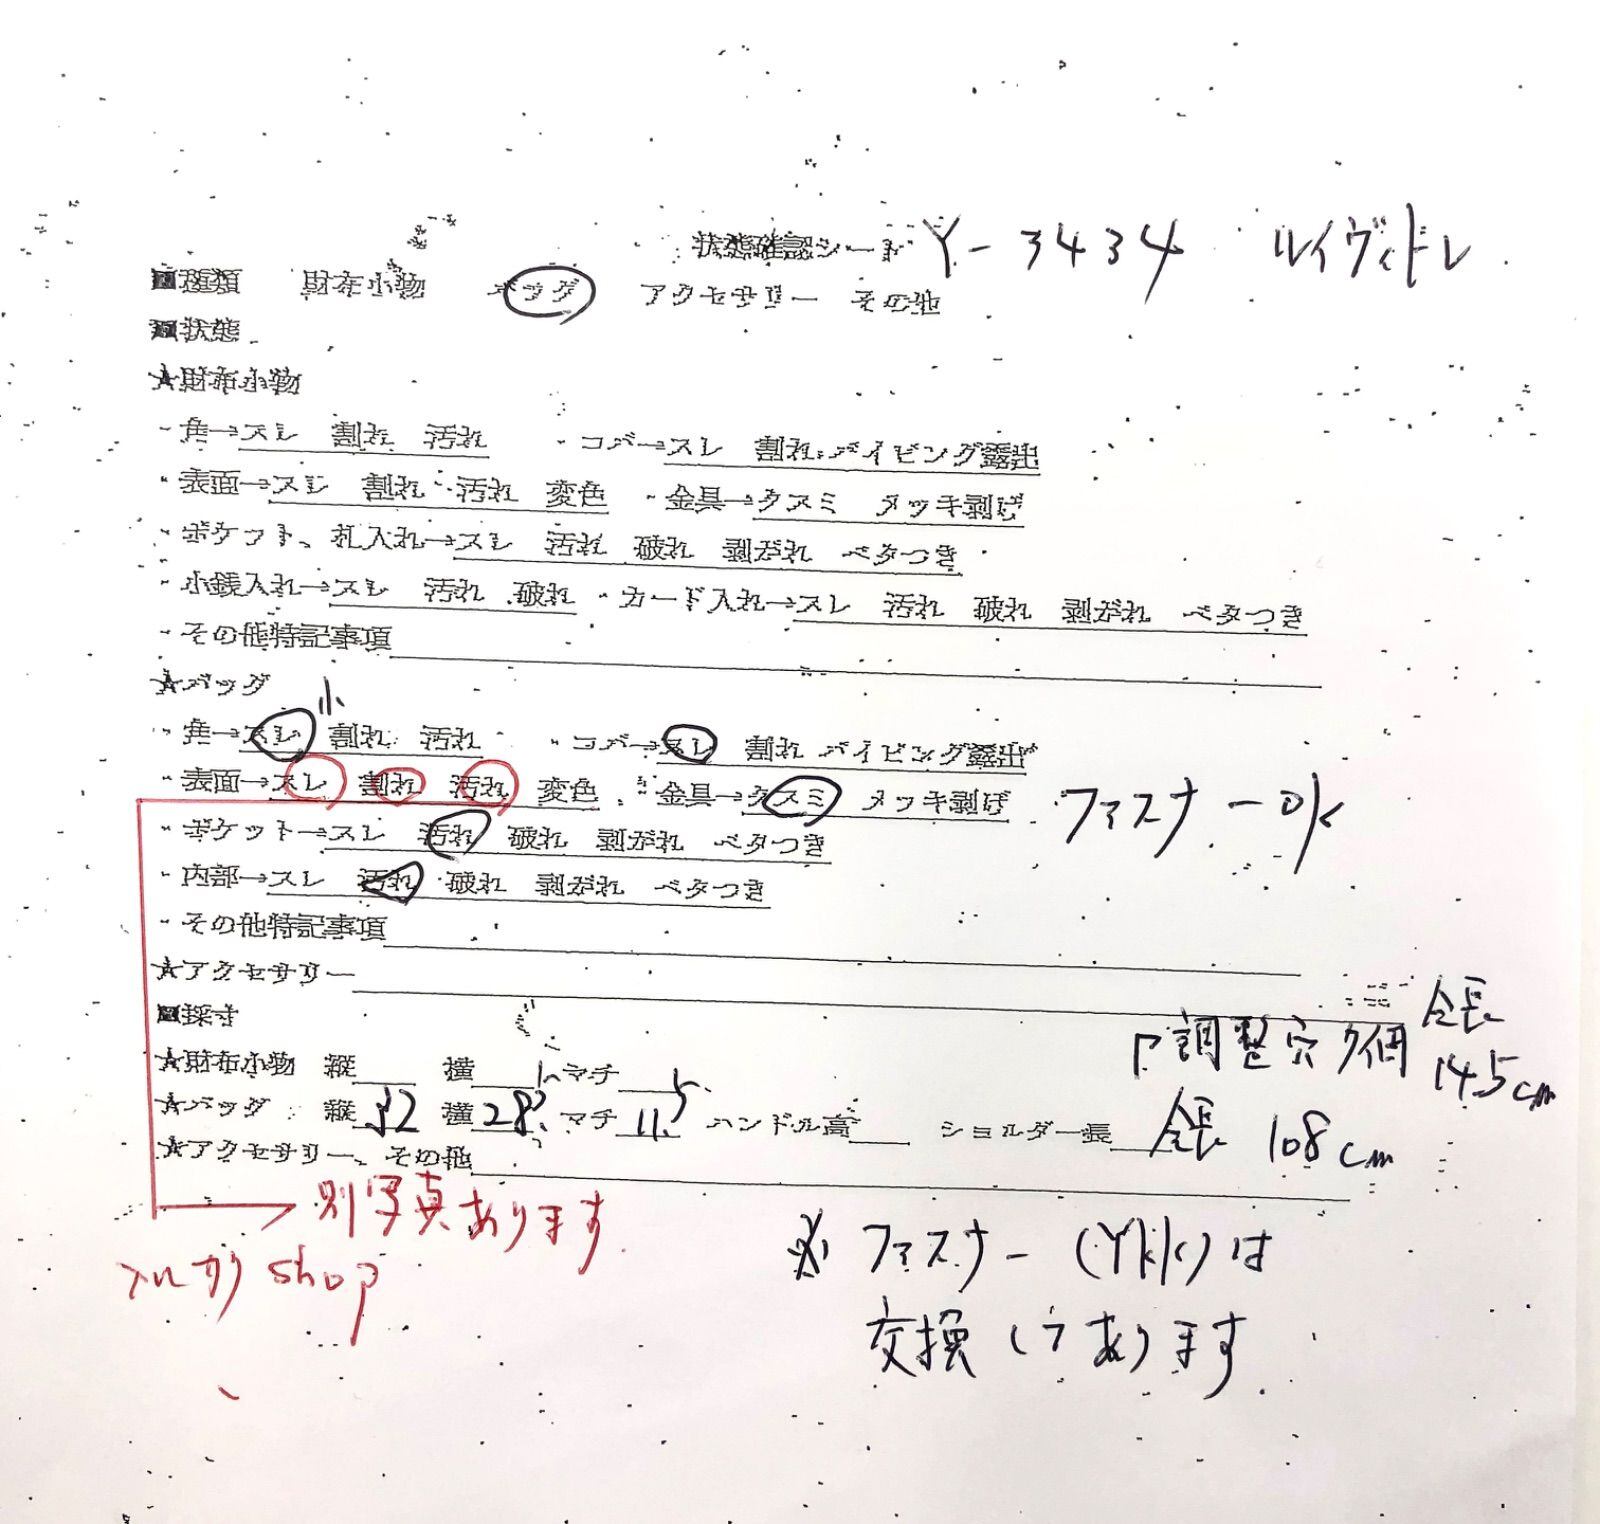 状態確認シート Y-3434 ルイヴィトン
■種類 財布小物 バッグ アクセサリー その他
■状態
★財布小物
・角→スレ 割れ 汚れ ・コバ→スレ 割れ パイピング露出
・表面→スレ 割れ 汚れ 変色 ・金具→クスミ メッキ剥げ
・ポケット、札入れ→スレ 汚れ 破れ 剥がれ ベタつき
・小銭入れ→スレ 汚れ 破れ ・カード入れ→スレ 汚れ 破れ 剥がれ ベタつき
・その他特記事項
★バッグ
小
・角→スレ 割れ 汚れ ・コバ→スレ 割れ パイピング露出
・表面→スレ 割れ 汚れ 変色 ・金具→クスミ メッキ剥げ ファスナーOK
・ポケット→スレ 汚れ 破れ 剥がれ ベタつき
・内部→スレ 汚れ 破れ 剥がれ ベタつき
・その他特記事項
★アクセサリー
■採寸
調整穴 個 全長
145cm
★財布小物 縦 横 マチ
★バッグ 縦32 横28 マチ11.5 ハンドル高 ショルダー長 全長 108cm
★アクセサリー、その他
別写真あります
メルカリshop
※ファスナー(YKK)は
交換してあります